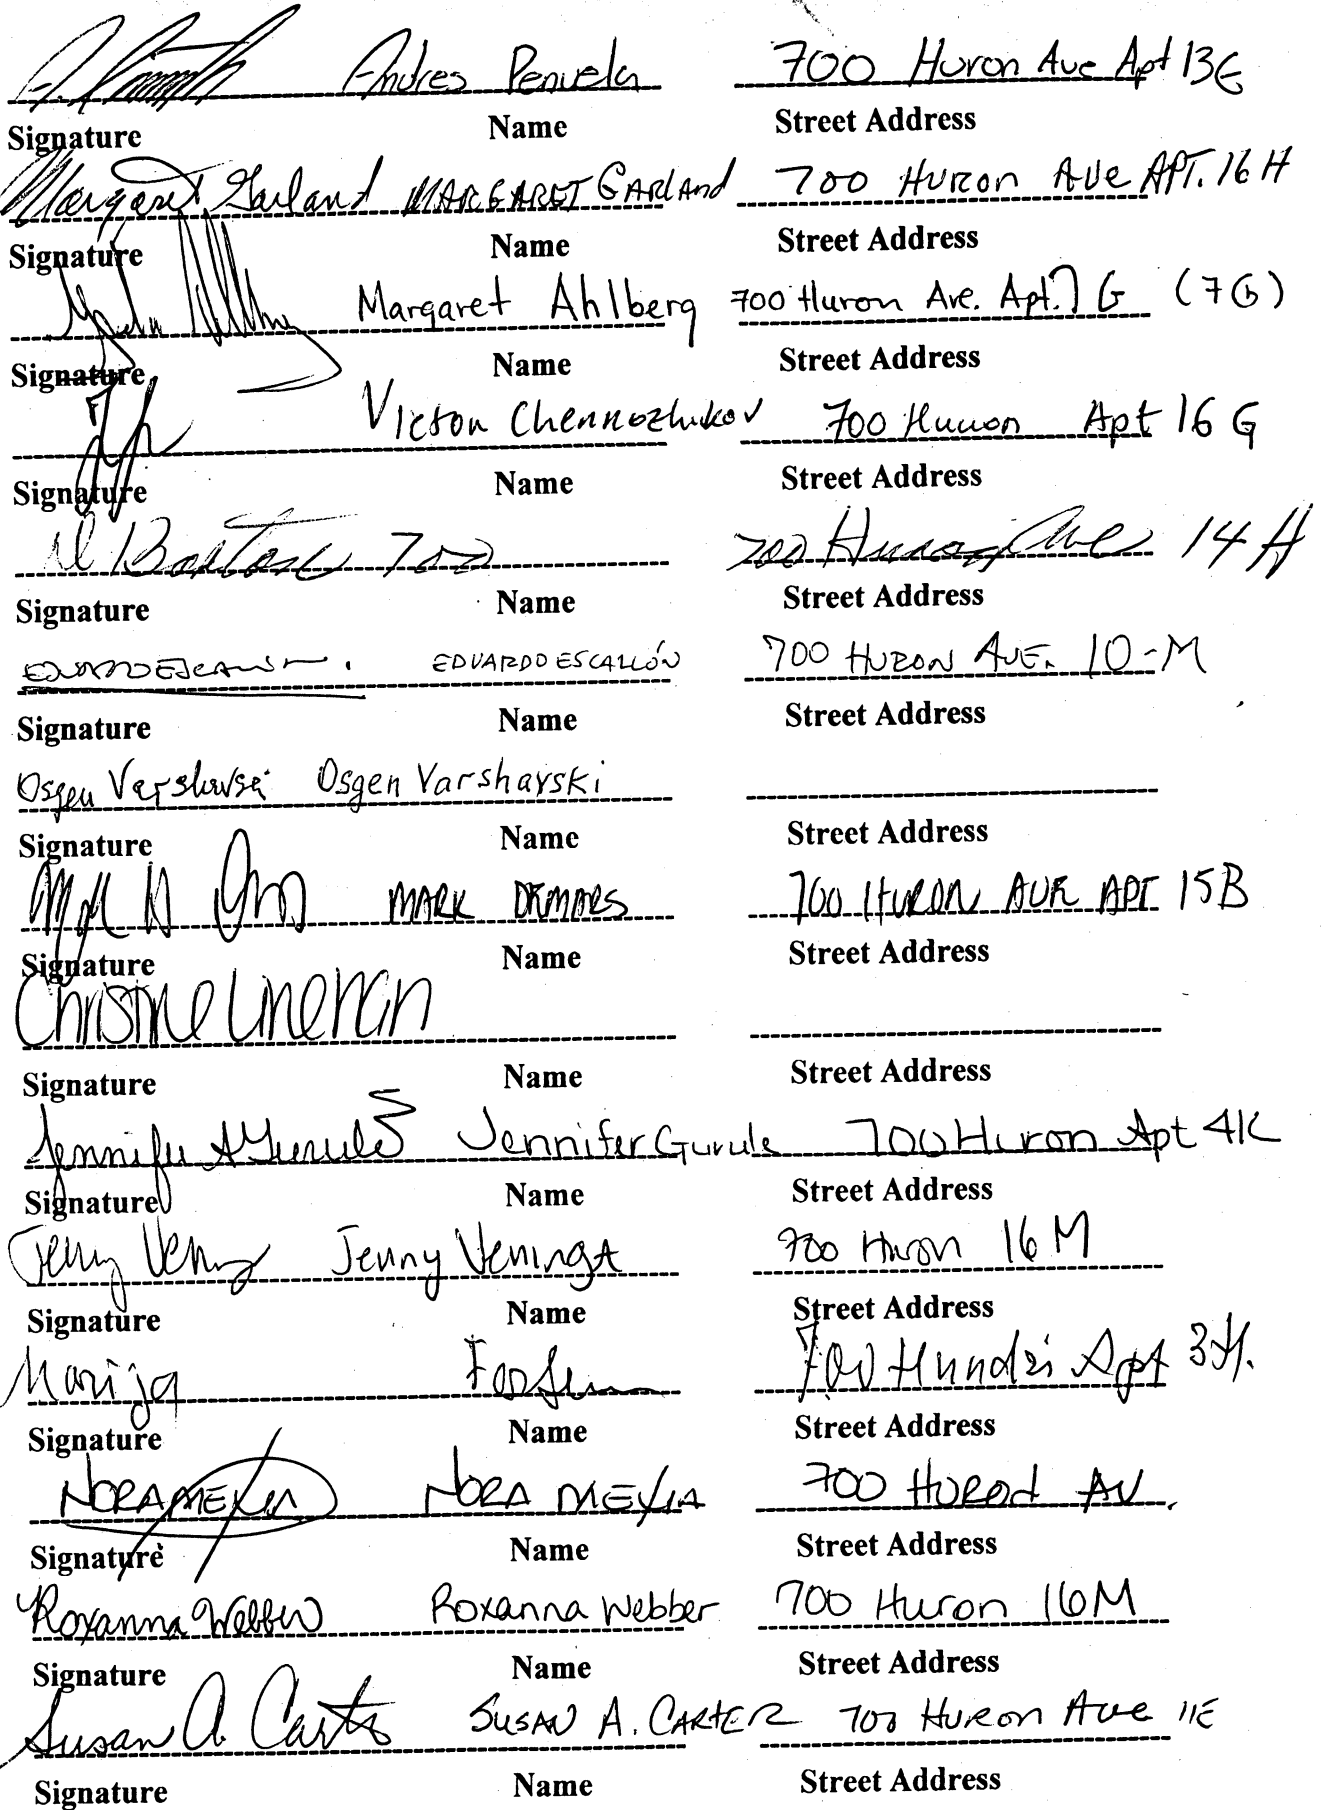 Andres Penuela 700 Huron Ave Apt 13G
Signature Name Street Address
Margaret Garland MARGARET GARLAND 700 HURON AVE APT. 16 H
Signature Name Street Address
Margaret Ahlberg 700 Huron Ave. Apt. 7 G (7G)
Signature Name Street Address
Victor Chernozhukov 700 Huron Apt 16 G
Signature Name Street Address
700 700 Huron Ave 14 H
Signature Name Street Address
EDUARDO ESCALLÓN 700 HURON AVE. 10-M
Signature Name Street Address
Osgen Varshavski Osgen Varshavski
Signature Name Street Address
MARK DEMARS 700 HURON AVE APT 15B
Signature Name Street Address
Christine Linehan
Signature Name Street Address
Jennifer A Gurule Jennifer Gurule 700 Huron Apt 4K
Signature Name Street Address
Jenny Veninga Jenny Veninga 700 Huron 16 M
Signature Name Street Address
Marija 700 Apt 3H.
Signature Name Street Address
NORA MEXIA NORA MEXIA 700 HURON AV.
Signature Name Street Address
Roxanna Webber Roxanna Webber 700 Huron 16M
Signature Name Street Address
Susan A. Carter SUSAN A. CARTER 700 HURON AVE 11E
Signature Name Street Address